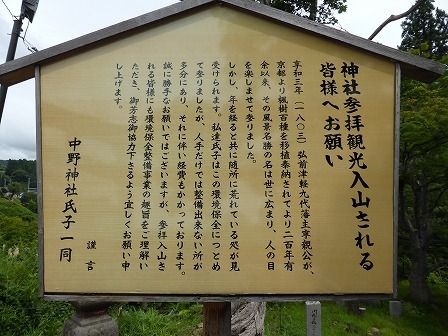 神社参拝観光入山される
皆様へお願い
享和三年(一八〇三)弘前津軽九代藩主寧親公が、
京都より楓樹百種を移植奉納されてより二百年有
余以来、その風景名勝の名は世に広まり、人の目
を楽しませて参りました。
しかし、年を経ると共に随所に荒れている処が見
受けられます。私達氏子はこの環境保全につとめ
て参りましたが、人手だけでは整備出来ない所が
多分にあり、それに伴い経費もかかっております。
誠に勝手なお願いではございますが、参拝入山さ
れる皆様にも環境保全整備事業の趣旨をご理解い
ただき、御芳志御協力下さるよう宜しくお願い申
し上げます。
謹言
中野神社氏子一同